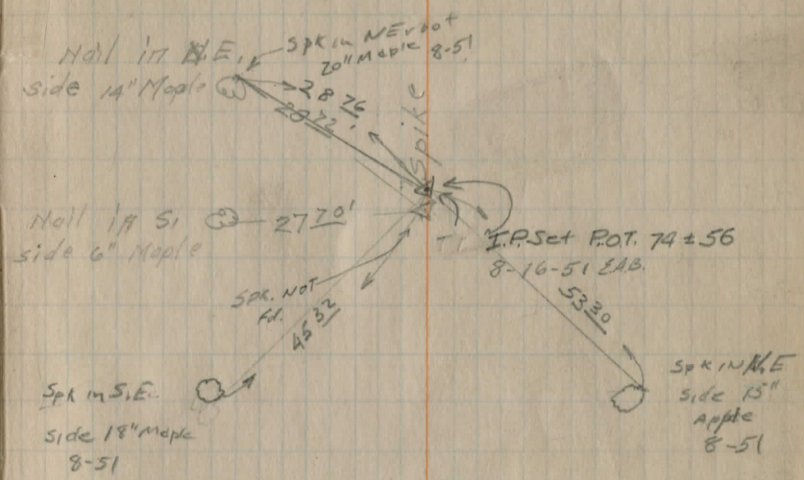 Nail in N.E.
side 14" Maple
Spk in NE root
20" Maple 8-51
28 76
28 72'
Spike
Nail in S.
side 6" Maple
27 70'
I.P. Set P.O.T. 74±56
8-16-51 E.A.B.
Spk. NOT
Fd.
45 32
53 30
Spk in S.E.
side 18" Maple
8-51
Spk IN N.E
side 15"
Apple
8-51